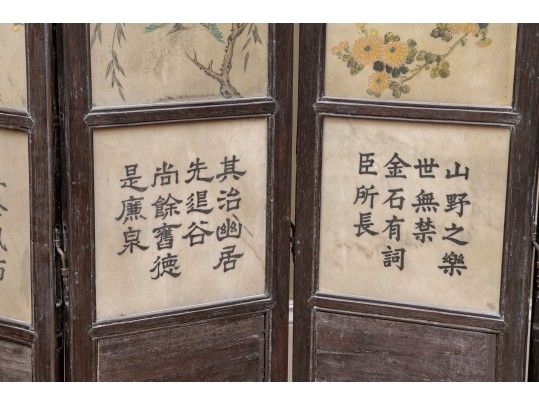 山野之樂
世無禁
金石有詞
臣所長
其治幽居
先退谷
尚餘舊德
是廉泉